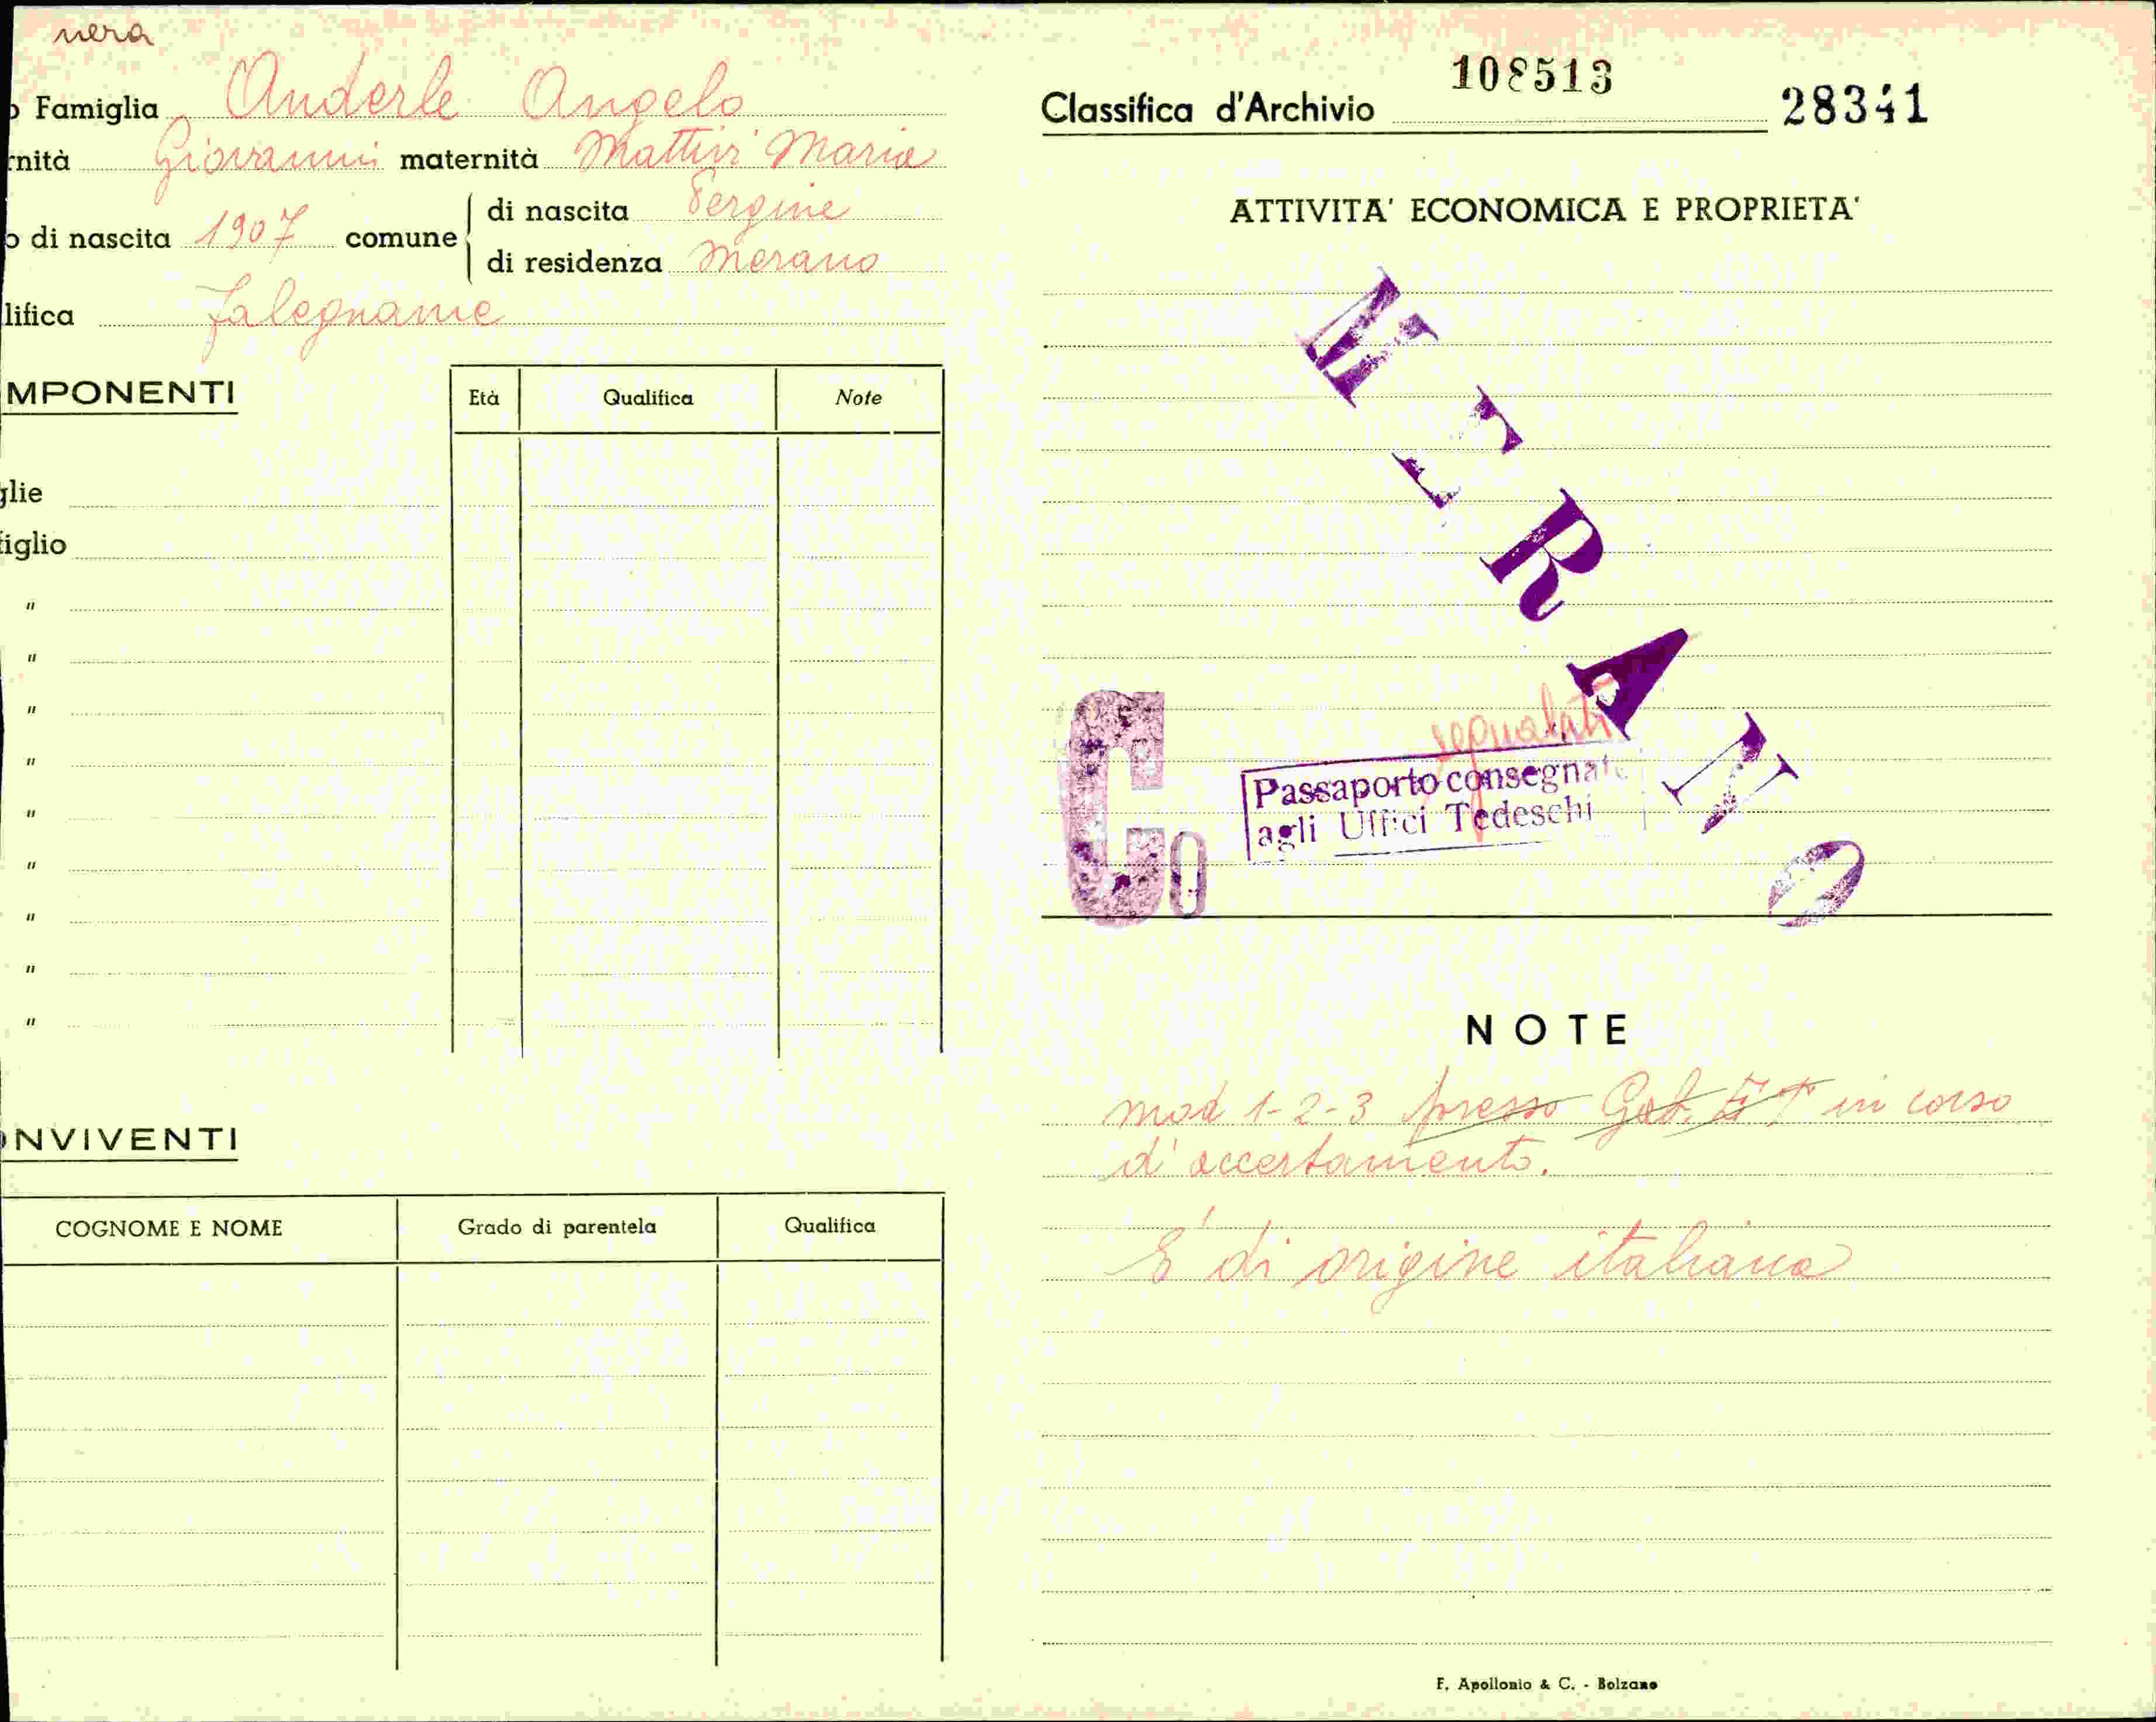 nera
o Famiglia Anderle Angelo
rnità Giovanni maternità Mattivi Maria
o di nascita 1907 comune di nascita Pergine
di residenza Merano
lifica falegname
MPONENTI
Età Qualifica Note
glie
figlio
"
"
"
"
"
"
"
"
"
ONVIVENTI
COGNOME E NOME Grado di parentela Qualifica
108513
Classifica d'Archivio 28341
ATTIVITA' ECONOMICA E PROPRIETA'
MERANO
segnalati
Co
Passaporto consegnato
agli Uffici Tedeschi
NOTE
mod 1-2-3 presso Gab. in corso
d'accertamento.
E' di origine italiana
F. Apollonio & C. - Bolzano